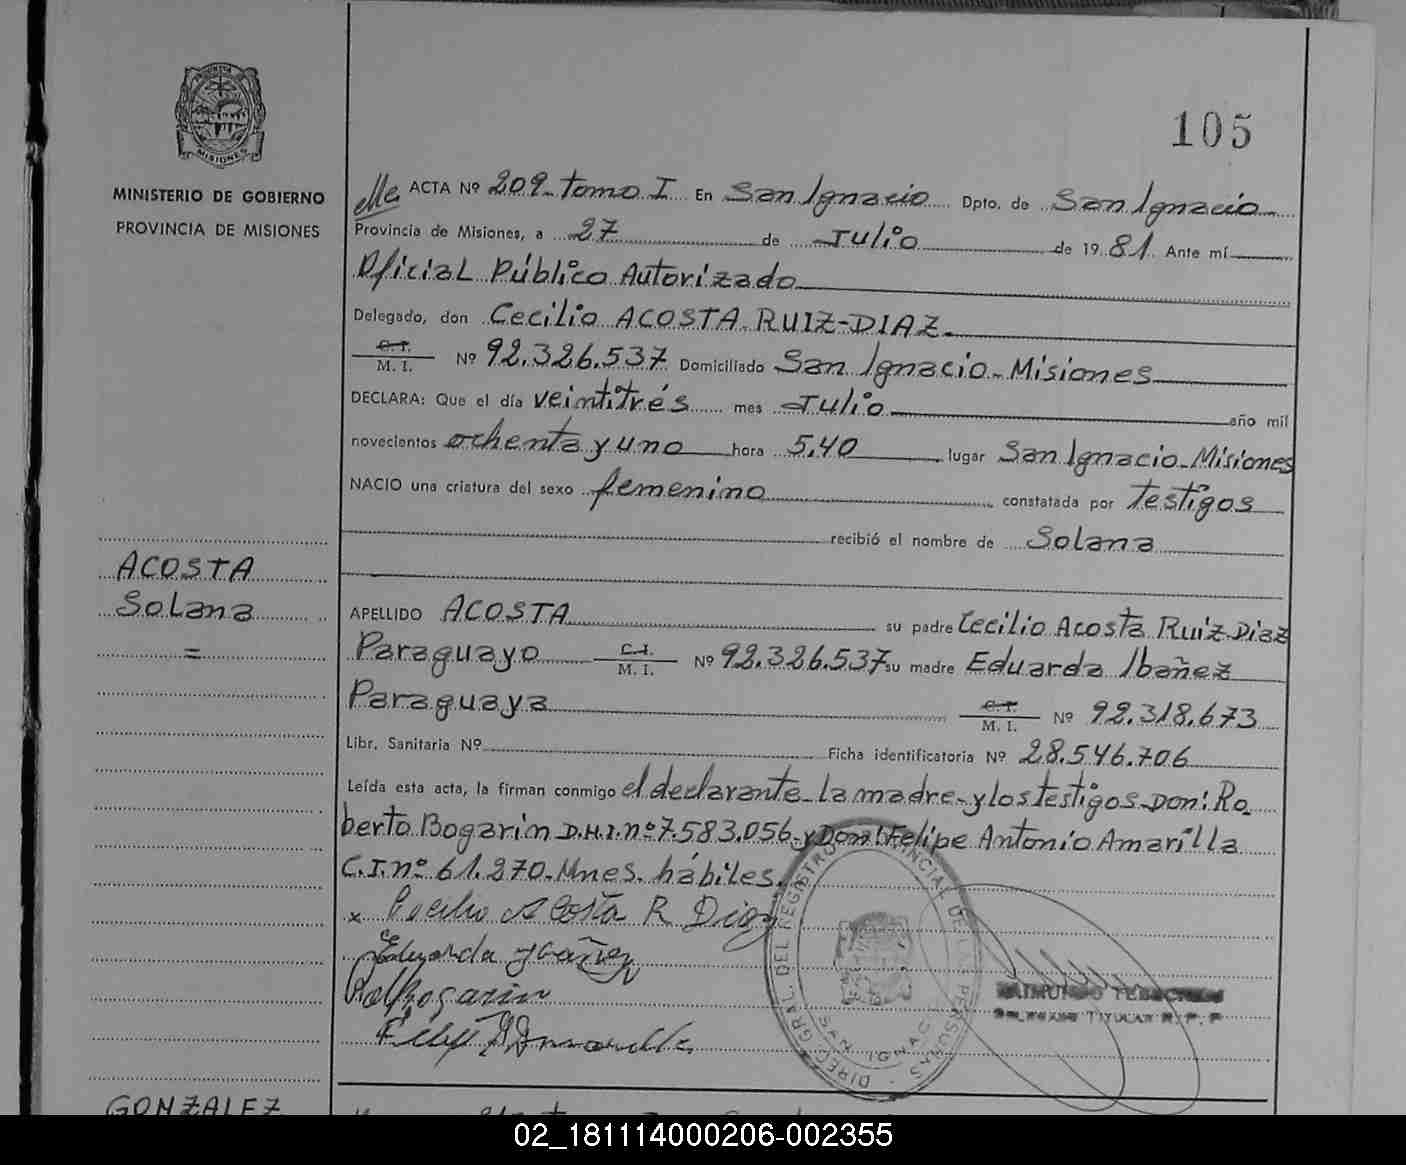 105
MISIONES
MINISTERIO DE GOBIERNO
PROVINCIA DE MISIONES
ACTA Nº 209 - tomo I En San Ignacio Dpto. de San Ignacio
Provincia de Misiones, a 27 de Julio de 1981. Ante mí
Oficial Público Autorizado
Delegado, don Cecilio ACOSTA RUIZ-DIAZ
C.I. M. I. Nº 92.326.537 Domiciliado San Ignacio - Misiones
DECLARA: Que el día veintitrés mes Julio año mil
novecientos ochenta y uno hora 5,40 lugar San Ignacio - Misiones
NACIO una criatura del sexo femenino constatada por testigos
recibió el nombre de Solana
ACOSTA
Solana
=
APELLIDO ACOSTA su padre Cecilio Acosta Ruiz-Diaz
Paraguayo C.I. M. I. Nº 92.326.537 su madre Eduarda Ibañez
Paraguaya C.I. M. I. Nº 92.318.673
Libr. Sanitaria Nº Ficha identificatoria Nº 28.546.706
Leída esta acta, la firman conmigo el declarante - la madre - y los testigos Don: Ro
berto Bogarin D.N.I. nº 7.583.056 - y Don: Felipe Antonio Amarilla
C.I. nº 61.270 - Mnes. hábiles.
x Cecilio Acosta R Diaz
Eduarda Ybañez
Bogarin
DIREC. GRAL. DEL REGISTRO PROVINCIAL DE LAS PERSONAS
SAN IGNACIO
RAIMUNDO
TITULAR R. P. P
GONZALEZ
02_181114000206-002355